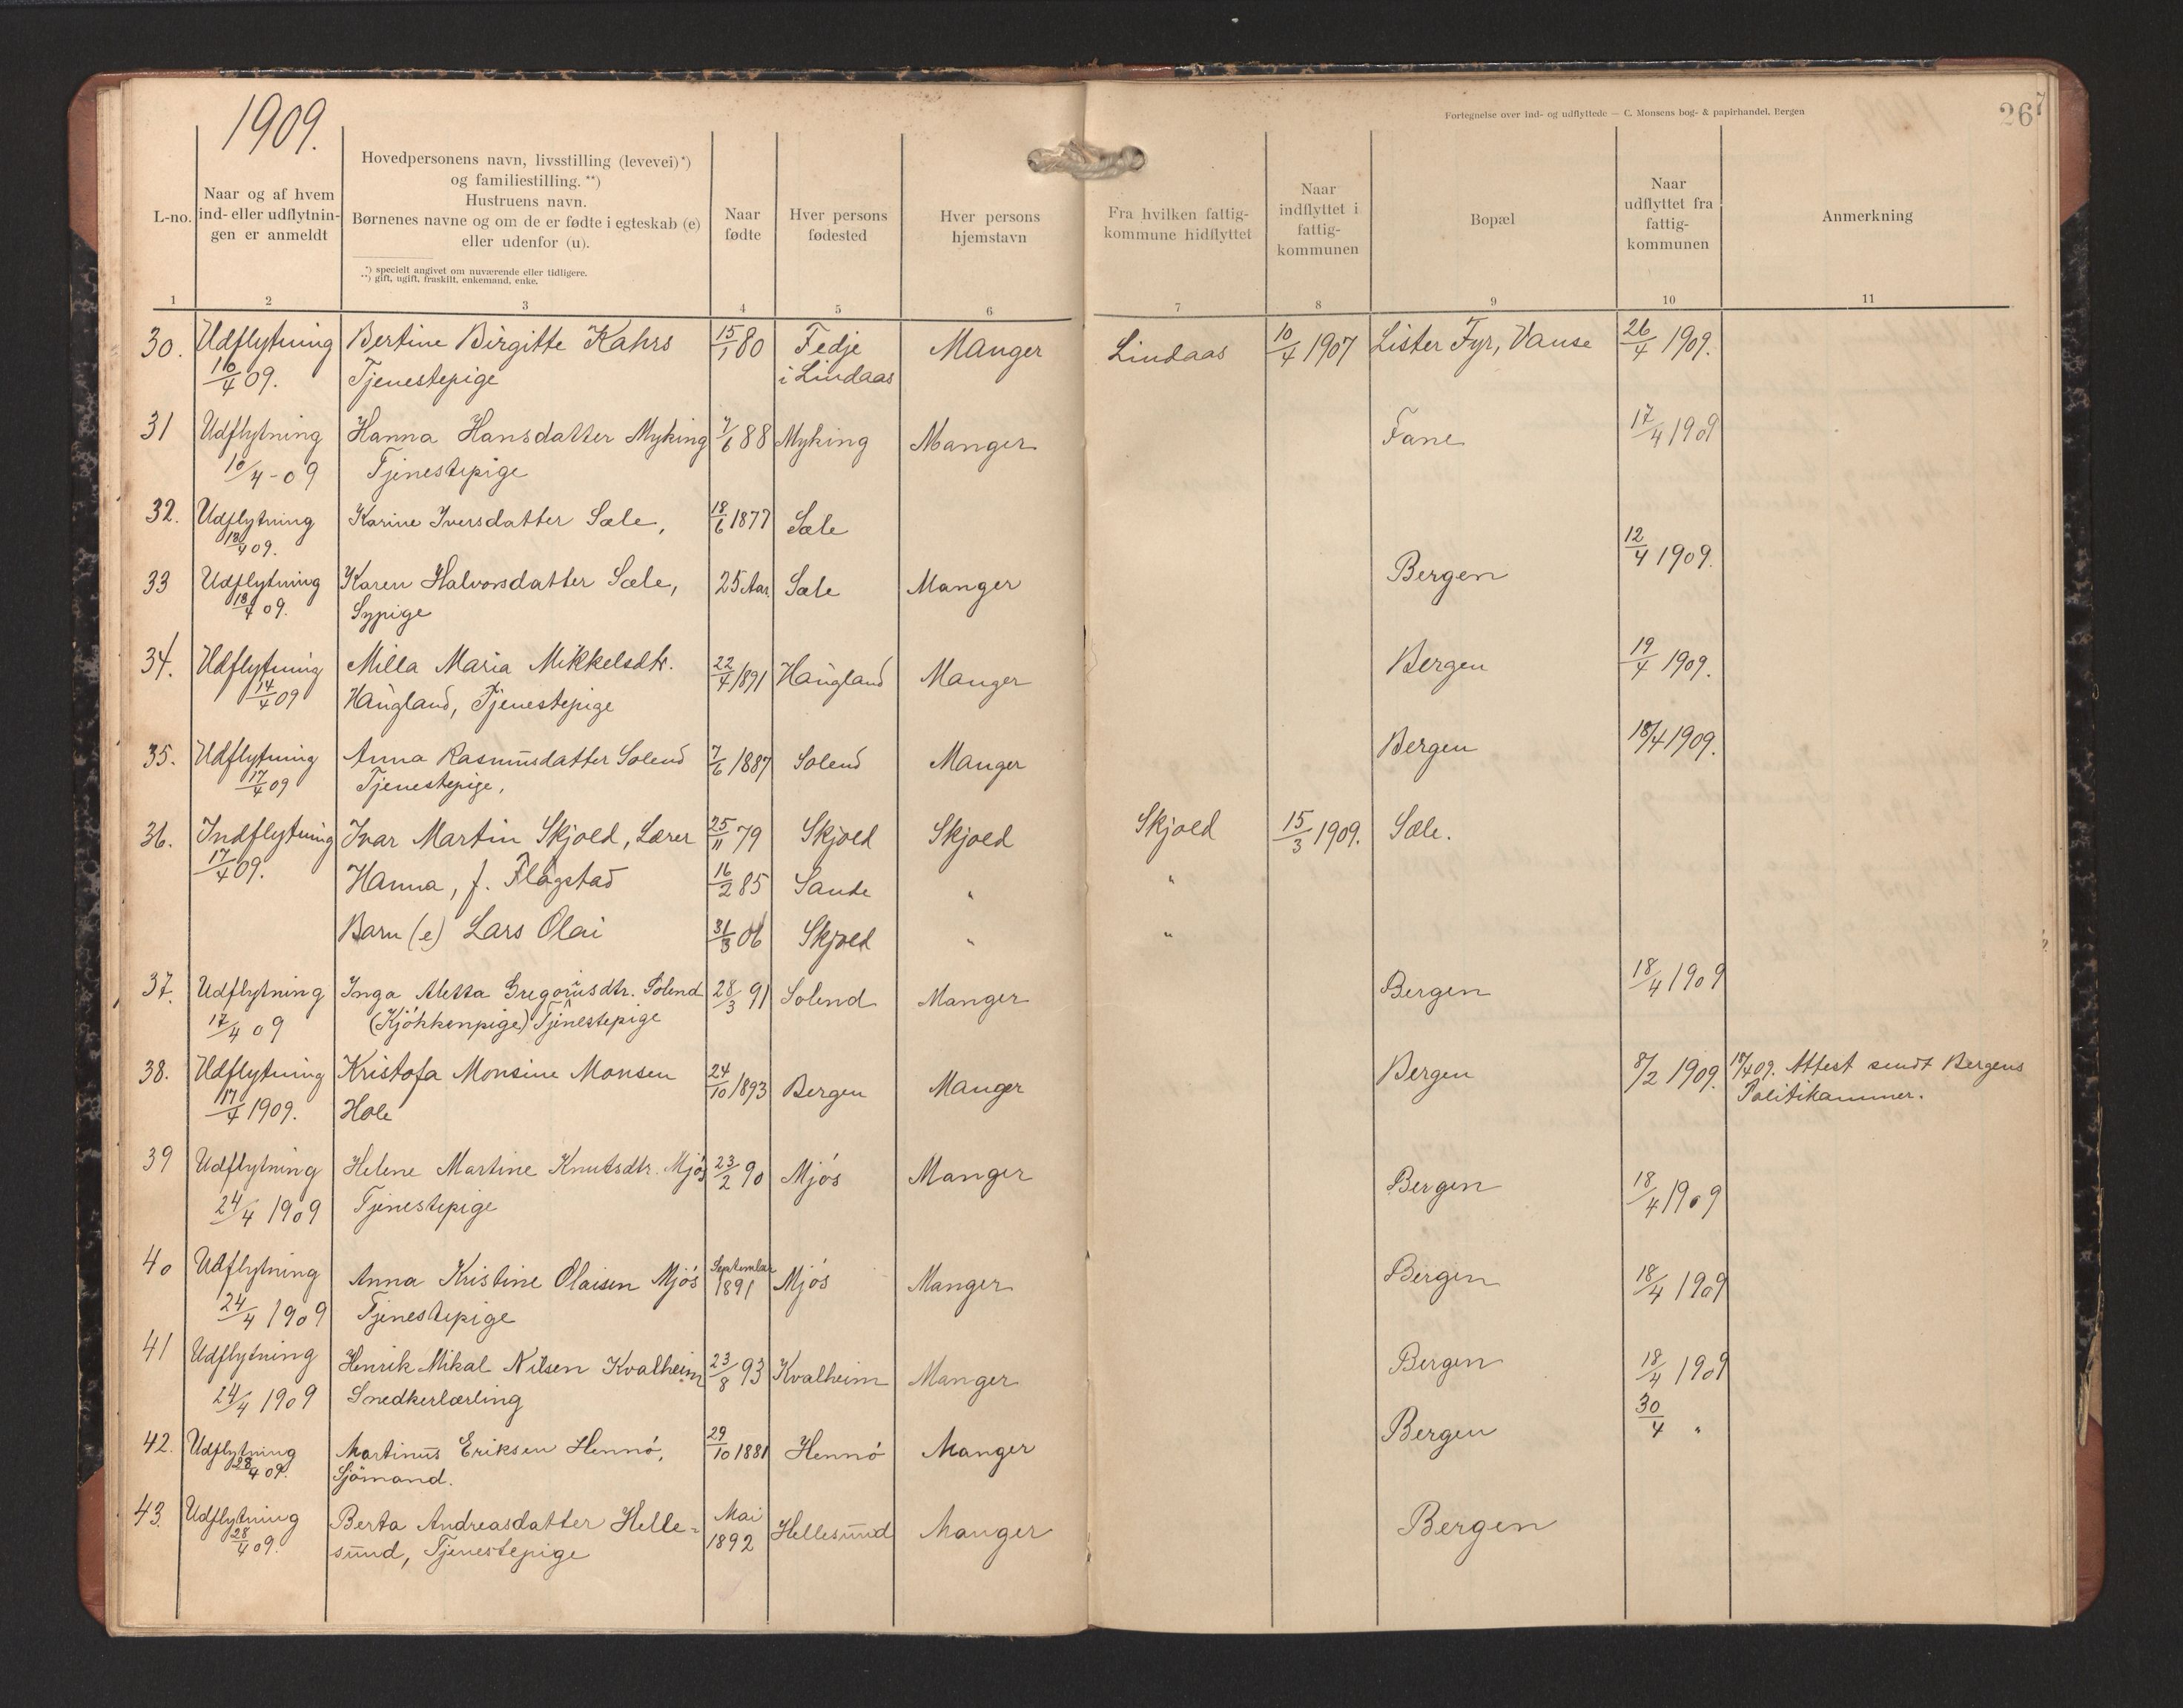 1909.
Fortegnelse over ind- og udflyttede — C. Monsens bog- & papirhandel, Bergen
267
L-no.
Naar og af hvem
ind- eller udflytnin-
gen er anmeldt
Hovedpersonens navn, livsstilling (levevei)*)
og familiestilling. **)
Hustruens navn.
Børnenes navne og om de er fødte i egteskab (e)
eller udenfor (u).
*) specielt angivet om nuværende eller tidligere.
**) gift, ugift, fraskilt, enkemand, enke.
Naar
fødte
Hver persons
fødested
Hver persons
hjemstavn
Fra hvilken fattig-
kommune hidflyttet
Naar
indflyttet i
fattig-
kommunen
Bopæl
Naar
udflyttet fra
fattig-
kommunen
Anmerkning
1 2 3 4 5 6 7 8 9 10 11
30. Udflytning Bertine Birgitte Kahrs 15/1 80 Fedje Manger Lindaas 10/4 1907 Lister Fyr, Vanse 26/4 1909.
16/4 09. Tjenestepige i Lindaas
31 Udflytning Hanna Hansdatter Myking 7/6 88 Myking Manger Fane 17/4 1909
16/4-09 Tjenestepige
32. Udflytning Karine Iversdatter Sæle, 18/6 1877 Sæle
18/4 09. 12/4 1909.
33 Udflytning Karen Halvorsdatter Sæle, 25 Aar. Sæle Manger Bergen
18/4 09. Sypige
34. Udflytning Milla Maria Mikkelsdtr. 22/4 1891 Haugland Manger Bergen 19/4 1909.
14/4 09 Haugland, Tjenestepige
35. Udflytning Anna Rasmusdatter Solend 7/6 1887 Solend Manger Bergen 18/4 1909.
17/4 09 Tjenestepige,
36. Indflytning Ivar Martin Skjold, Lærer 25/11 79 Skjold Skjold Skjold 15/3 1909. Sæle.
17/4 09. Hanna, f. Flagstad 16/2 85 Sande " "
Barn (e) Lars Olai 31/3 06 Skjold " "
37. Udflytning Inga Aletta Gregoriusdtr. Solend 28/3 91 Solend Manger Bergen 18/4 1909
17/4 09 (Kjökkenpige) Tjenestepige
38. Udflytning Kristofa Monsine Monsen 24/10 1893 Bergen Manger Bergen 8/2 1909. 17/4 09. Attest sendt Bergens
17/4 1909. Hole Politikammer.
39 Udflytning Helene Martine Knutsdtr. Mjös 23/2 90 Mjös Manger Bergen 18/4 1909
24/4 1909 Tjenestepige
40 Udflytning Anna Kristine Olaisen Mjös September 1891 Mjös Manger Bergen 18/4 1909
24/4 1909 Tjenestepige
41 Udflytning Henrik Mikal Nilsen Kvalheim 23/8 93 Kvalheim Manger Bergen 18/4 1909
24/4 1909 Snedkerlærling
42. Udflytning Martinus Eriksen Hennö, 29/10 1881 Hennö Manger Bergen 30/4 "
28/4 09. Sjömand.
43. Udflytning Berta Andreasdatter Helle- Mai 1892 Hellesund Manger Bergen
28/4 09. sund, Tjenestepige